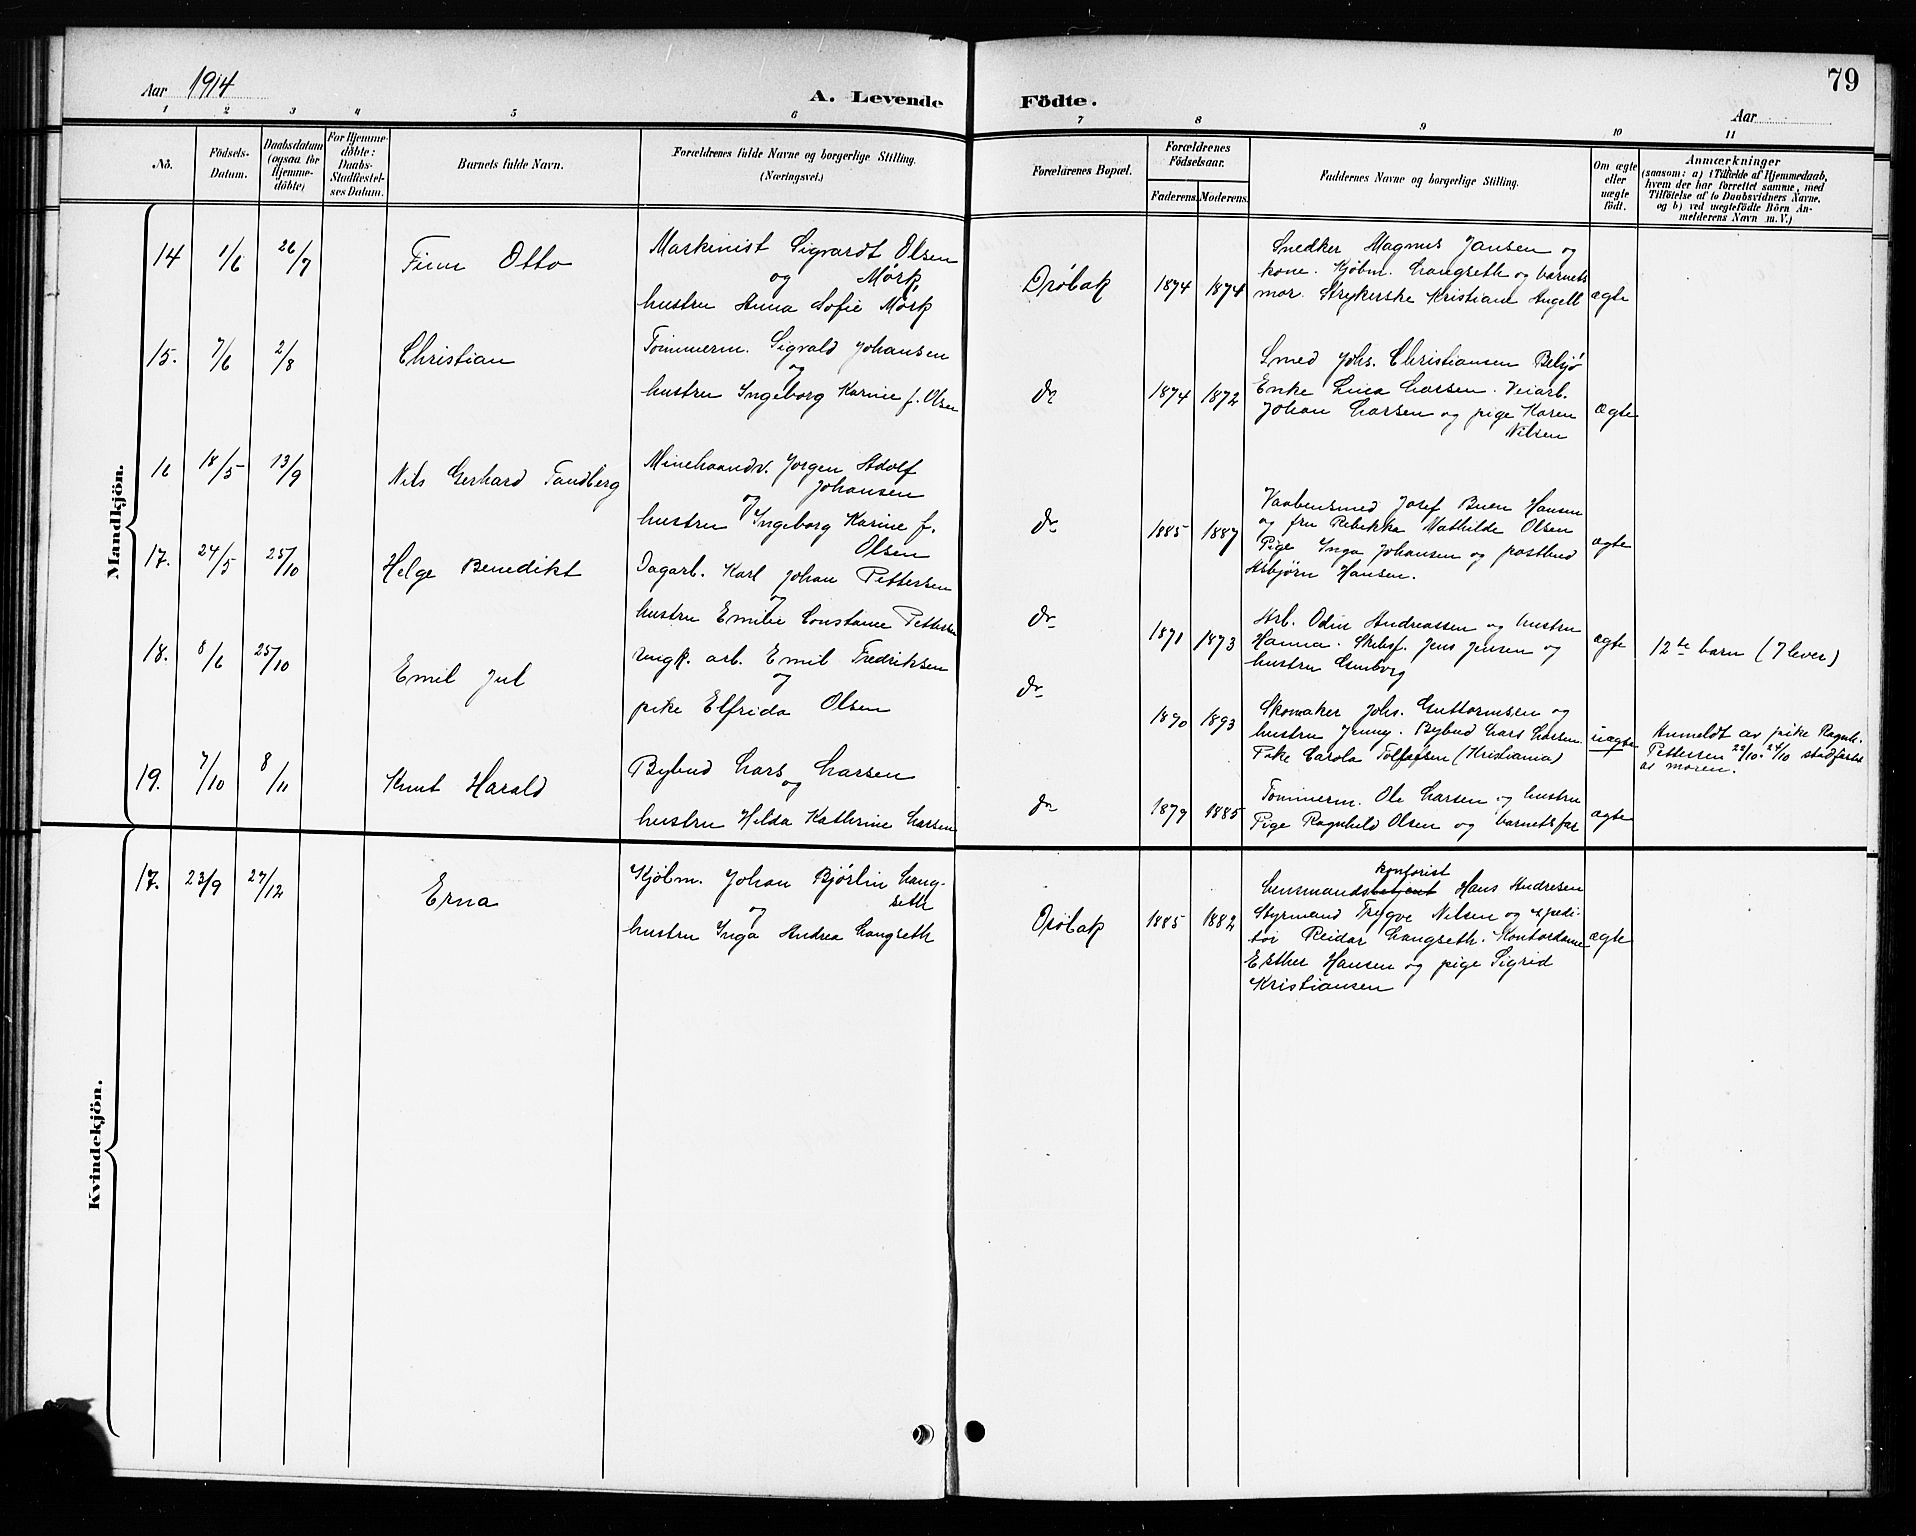 79
Aar 1914
A. Levende Födte.
Aar
1 2 3 4 5 6 7 8 9 10 11
No.
Födsels-Datum.
Daabsdatum (ogsaa for Hjemme-döbte)
For Hjemme-döbte: Daabs-Stadfæstel-ses Datum.
Barnets fulde Navn.
Forældrenes fulde Navne og borgerlige Stilling.
(Næringsvei.)
Forældrenes Bopæl.
Forældrenes Födselsaar.
Faderens. Moderens.
Faddernes Navne og borgerlige Stilling.
Om ægte eller uægte födt.
Anmærkninger
(saasom: a) i Tilfælde af Hjemmedaab,
hvem der har forrettet samme, med
Tilföielse af to Daabsvidners Navne,
og b) ved uægtefödte Börn An-
melderens Navn m. V.)
Mandkjön.
14 1/6 26/7 Finn Otto
Maskinist Sigvardt Olsen
og Mørk,
hustru Anna Sofie Mørk
Drøbak 1874 1874
Snedker Magnus Jansen og
kone. Kjøbm. Langseth og barnets
mor. Strykerske Kristiane Angell
ægte
15. 7/6 2/8 Christian
Tømmerm. Sigvald Johansen
og
hustru Ingeborg Karine f. Olsen
do 1874 1872
Smed Johs. Christiansen Belsjø
Enke Lina Larsen. Veiarb.
Johan Larsen og pige Karen
Nilsen
ægte
16 18/5 13/9 Nils Gerhard Tandberg
Minehaandv. Jørgen Adolf
Johansen
og
hustru Ingeborg Karine f.
Olsen
do 1885 1887
Vaabensmed Josef Buen Hansen
og fru Rebekka Mathilde Olsen
Pige Inga Johansen og postbud
Asbjørn Hansen.
ægte
17. 24/5 25/10 Helge Benedikt
Dagarb. Karl Johan Pettersen
og
hustru Emilie Constance Pettersen
do 1871 1873
Arb. Odin Andreassen og hustru
Hanna. Skibsf. Jens Jensen og
hustru
ægte
12te barn (7 lever)
18. 8/6 25/10 Emil Jul
Ungk. arb. Emil Fredriksen
og
pike Elfrida Olsen
do 1890 1893
Skomaker Johs. Guttormsen og
hustru Jenny. Bybud Lars Larsen.
Pike Carola (Kristiania)
uægte
Anmeldt av pike Ragnh.
Pettersen 22/10. 24/10 stadfæstet
av moren.
19. 7/10 8/11 Knut Harald
Bybud Lars Larsen
og
hustru Hilda Kathrine Larsen
do 1879 1885
Tømmerm. Ole Larsen og hustru
Pige Ragnhild Olsen og barnets far
ægte
Kvindekjön.
17. 23/9 27/12 Erna
Kjøbm. Johan Bjørlin Lang-
seth
og
hustru Inga Andrea Langseth
Drøbak 1885 1882
kontorist
Lensmandsbetjent Hans Andresen
Styrmand Trygve Nilsen og expedi-
tør Reidar Langseth. Kontordame
Esther Hansen og pige Sigrid
Kristiansen
ægte